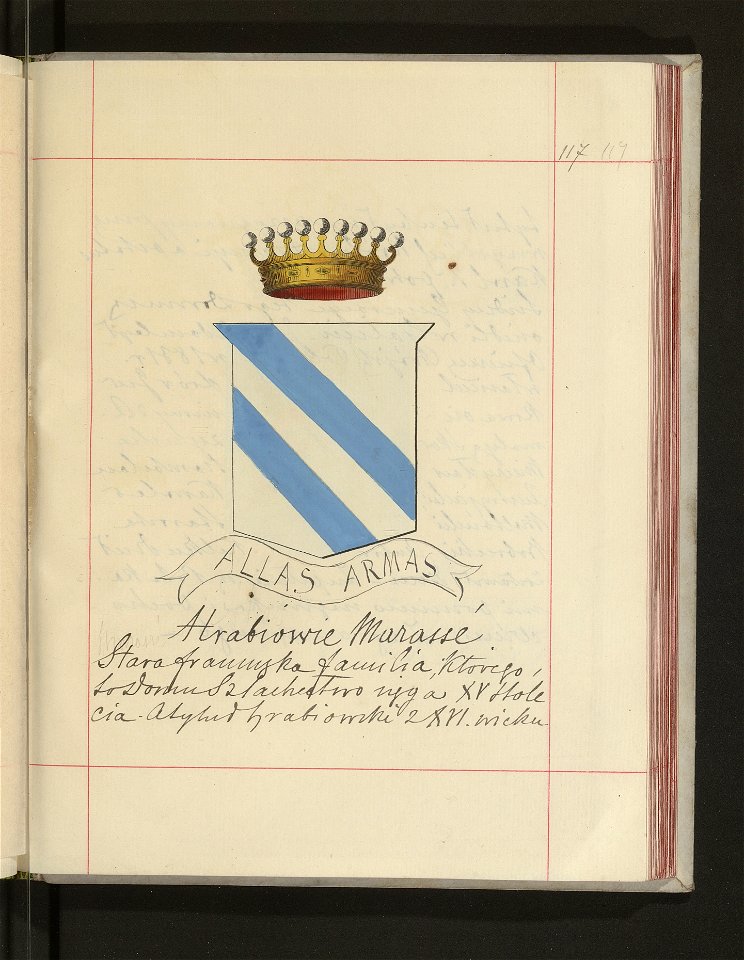 117 119
ALLAS ARMAS
Hrabiowie Marassé
Stara francuzka familia, którego
to Domu Szlachectwo sięga XV stole
cia. A tytuł hrabiowski z XVI. wieku